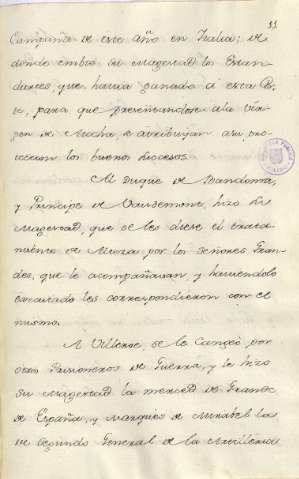 11
Campaña de este año en Italia; de
donde embió su Magestad los Estan-
dartes, que havia ganado á esta
para que presentandose a la Vir-
gen de Atocha, se atribuyan a su pro-
teccion los buenos sucesos.
Al Duque de Vandoma,
y Principe de Vaudemont, hizo Su
Magestad, que se les diese el trata-
miento de Alteza por los Señores Gran-
des, que le acompañavan, y haviendolo
executado les correspondieron con el
mismo.
A Villeroe, se le Cangeó por
otros Prisioneros de Guerra, y le hizo
Su Magestad la merced de Grande
de España, y Marques de Mirabel la
de segundo General de la Artilleria